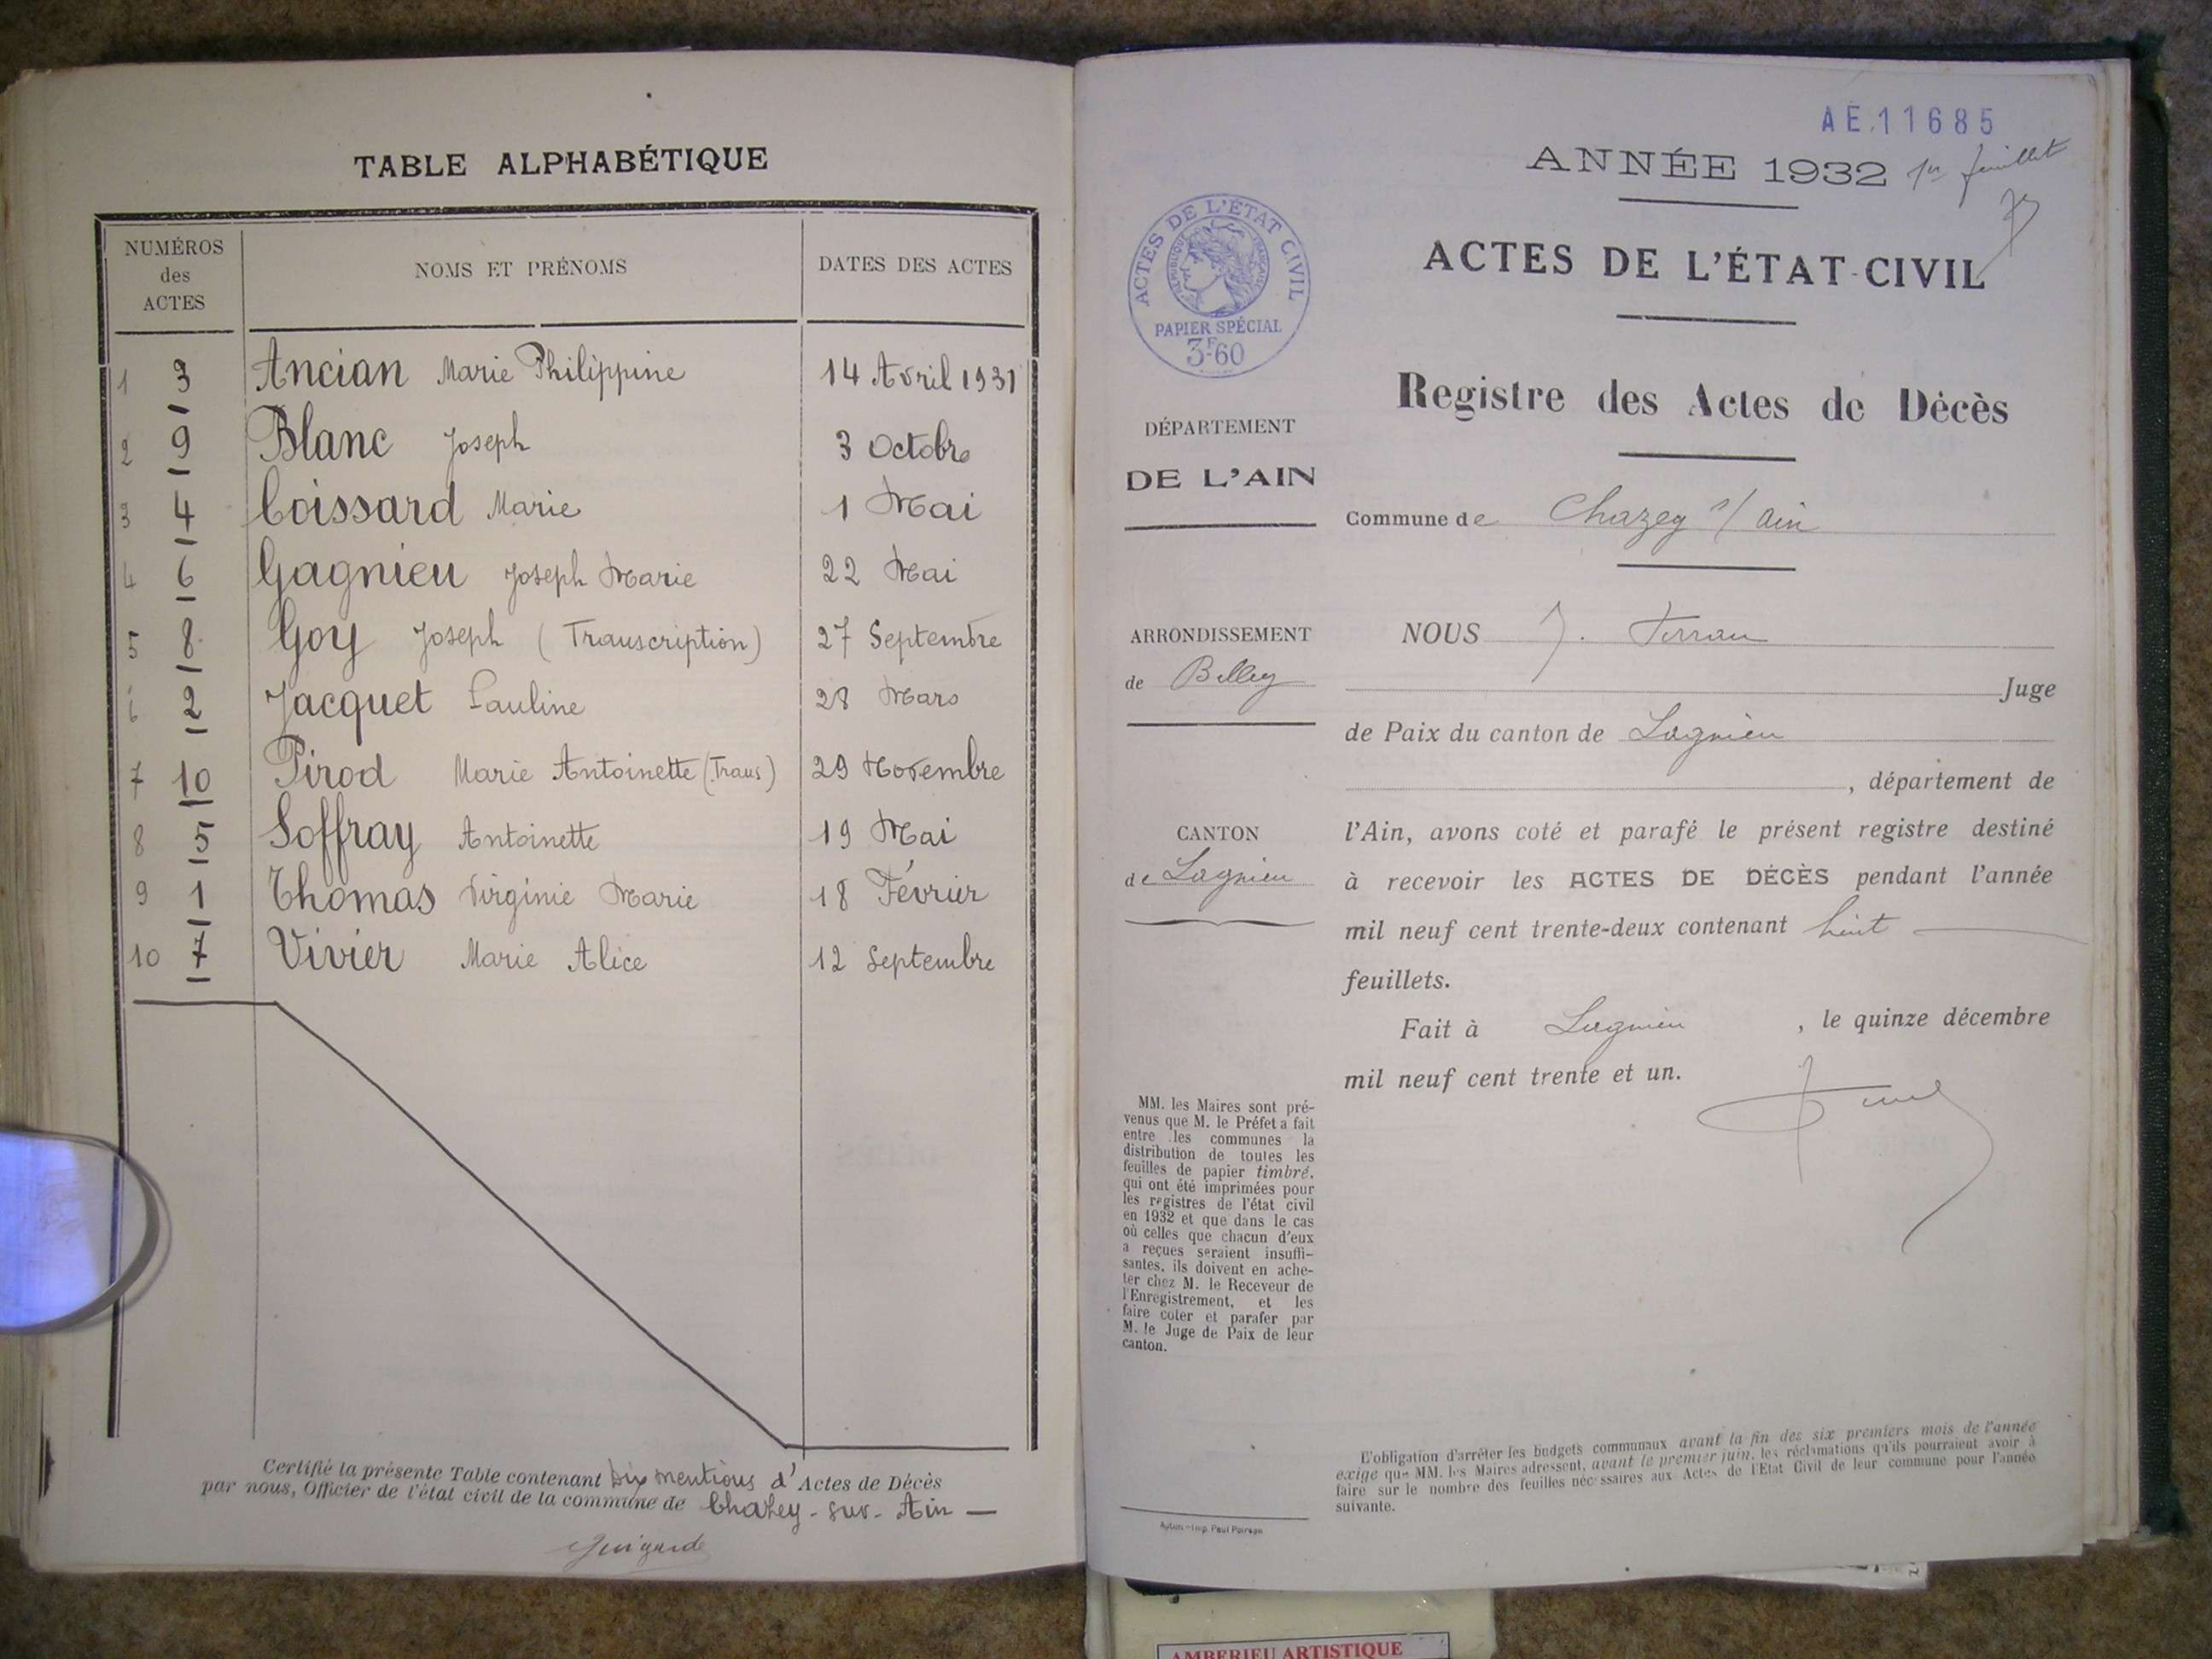 TABLE ALPHABÉTIQUE
NUMÉROS des ACTES NOMS ET PRÉNOMS DATES DES ACTES
1 3 Ancian Marie Philippine 14 Avril 1931
2 9 Blanc Joseph 3 Octobre
3 4 Coissard Marie 1 Mai
4 6 Gagnieu Joseph Marie 22 Mai
5 8 Goy Joseph (Transcription) 27 Septembre
6 2 Jacquet Pauline 28 Mars
7 10 Pirod Marie Antoinette (Trans) 29 Novembre
8 5 Soffray Antoinette 19 Mai
9 1 Thomas Virginie Marie 18 Février
10 7 Vivier Marie Alice 12 Septembre
Certifié la présente Table contenant Dix mentions d'Actes de Décès
par nous, Officier de l'état civil de la commune de Chazey-sur-Ain
AE.11685
ANNÉE 1932 1er feuillet
ACTES DE L'ÉTAT-CIVIL
ACTES DE L'ÉTAT CIVIL
RÉPUBLIQUE FRANÇAISE
PAPIER SPÉCIAL
3F.60
Registre des Actes de Décès
DÉPARTEMENT
DE L'AIN
Commune de Chazey s/ Ain
ARRONDISSEMENT
de Belley
NOUS J.
Juge
de Paix du canton de Lagnieu
, département de
CANTON
de Lagnieu
l'Ain, avons coté et parafé le présent registre destiné
à recevoir les ACTES DE DÉCÈS pendant l'année
mil neuf cent trente-deux contenant huit
feuillets.
Fait à Lagnieu , le quinze décembre
mil neuf cent trente et un.
MM. les Maires sont pré-
venus que M. le Préfet a fait
entre les communes la
distribution de toutes les
feuilles de papier timbré,
qui ont été imprimées pour
les registres de l'état civil
en 1932 et que dans le cas
où celles que chacun d'eux
a reçues seraient insuffi-
santes, ils doivent en ache-
ter chez M. le Receveur de
l'Enregistrement, et les
faire coter et parafer par
M. le Juge de Paix de leur
canton.
L'obligation d'arrêter les budgets communaux avant la fin des six premiers mois de l'année
exige que MM. les Maires adressent, avant le premier juin, les réclamations qu'ils pourraient avoir à
faire sur le nombre des feuilles nécessaires aux Actes de l'Etat Civil de leur commune pour l'année
suivante.
AMBERIEU ARTISTIQUE